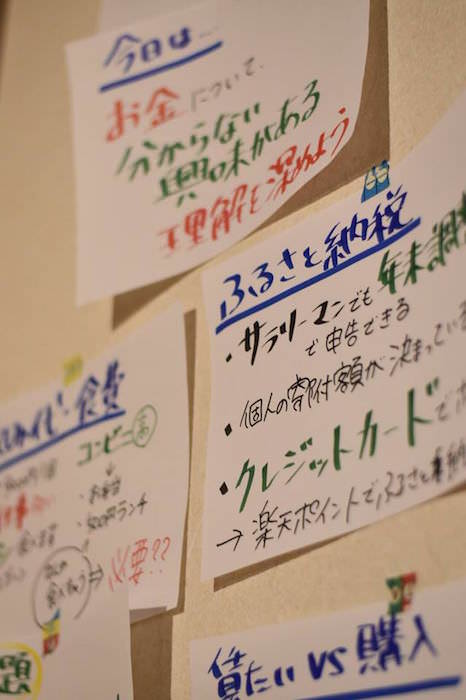 今日は…
お金について、
分からない
興味がある
理解を深めよう
ふるさと納税
・サラリーマンでも年末調整
で申告できる
・個人の寄附額が決まっている
・クレジットカードで
→楽天ポイントでふるさと納
食費
コンビニ高
↓
・お弁当
・500円ランチ
⇒必要??
題
賃たいvs購入